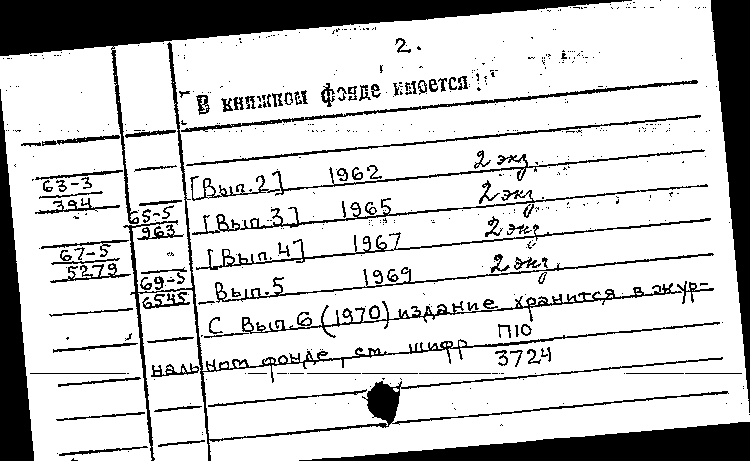 2.
В книжном фонде имеется!
63-3
394 [Вып.2] 1962 2 экз.
65-5
963 [Вып.3] 1965 2 экз.
67-5
5279 [Вып.4] 1967 2 экз.
69-5
6545 Вып.5 1969 2 экз.
С Вып.6 (1970) издание хранится в жур-
нальном фонде, см. шифр П10
3724